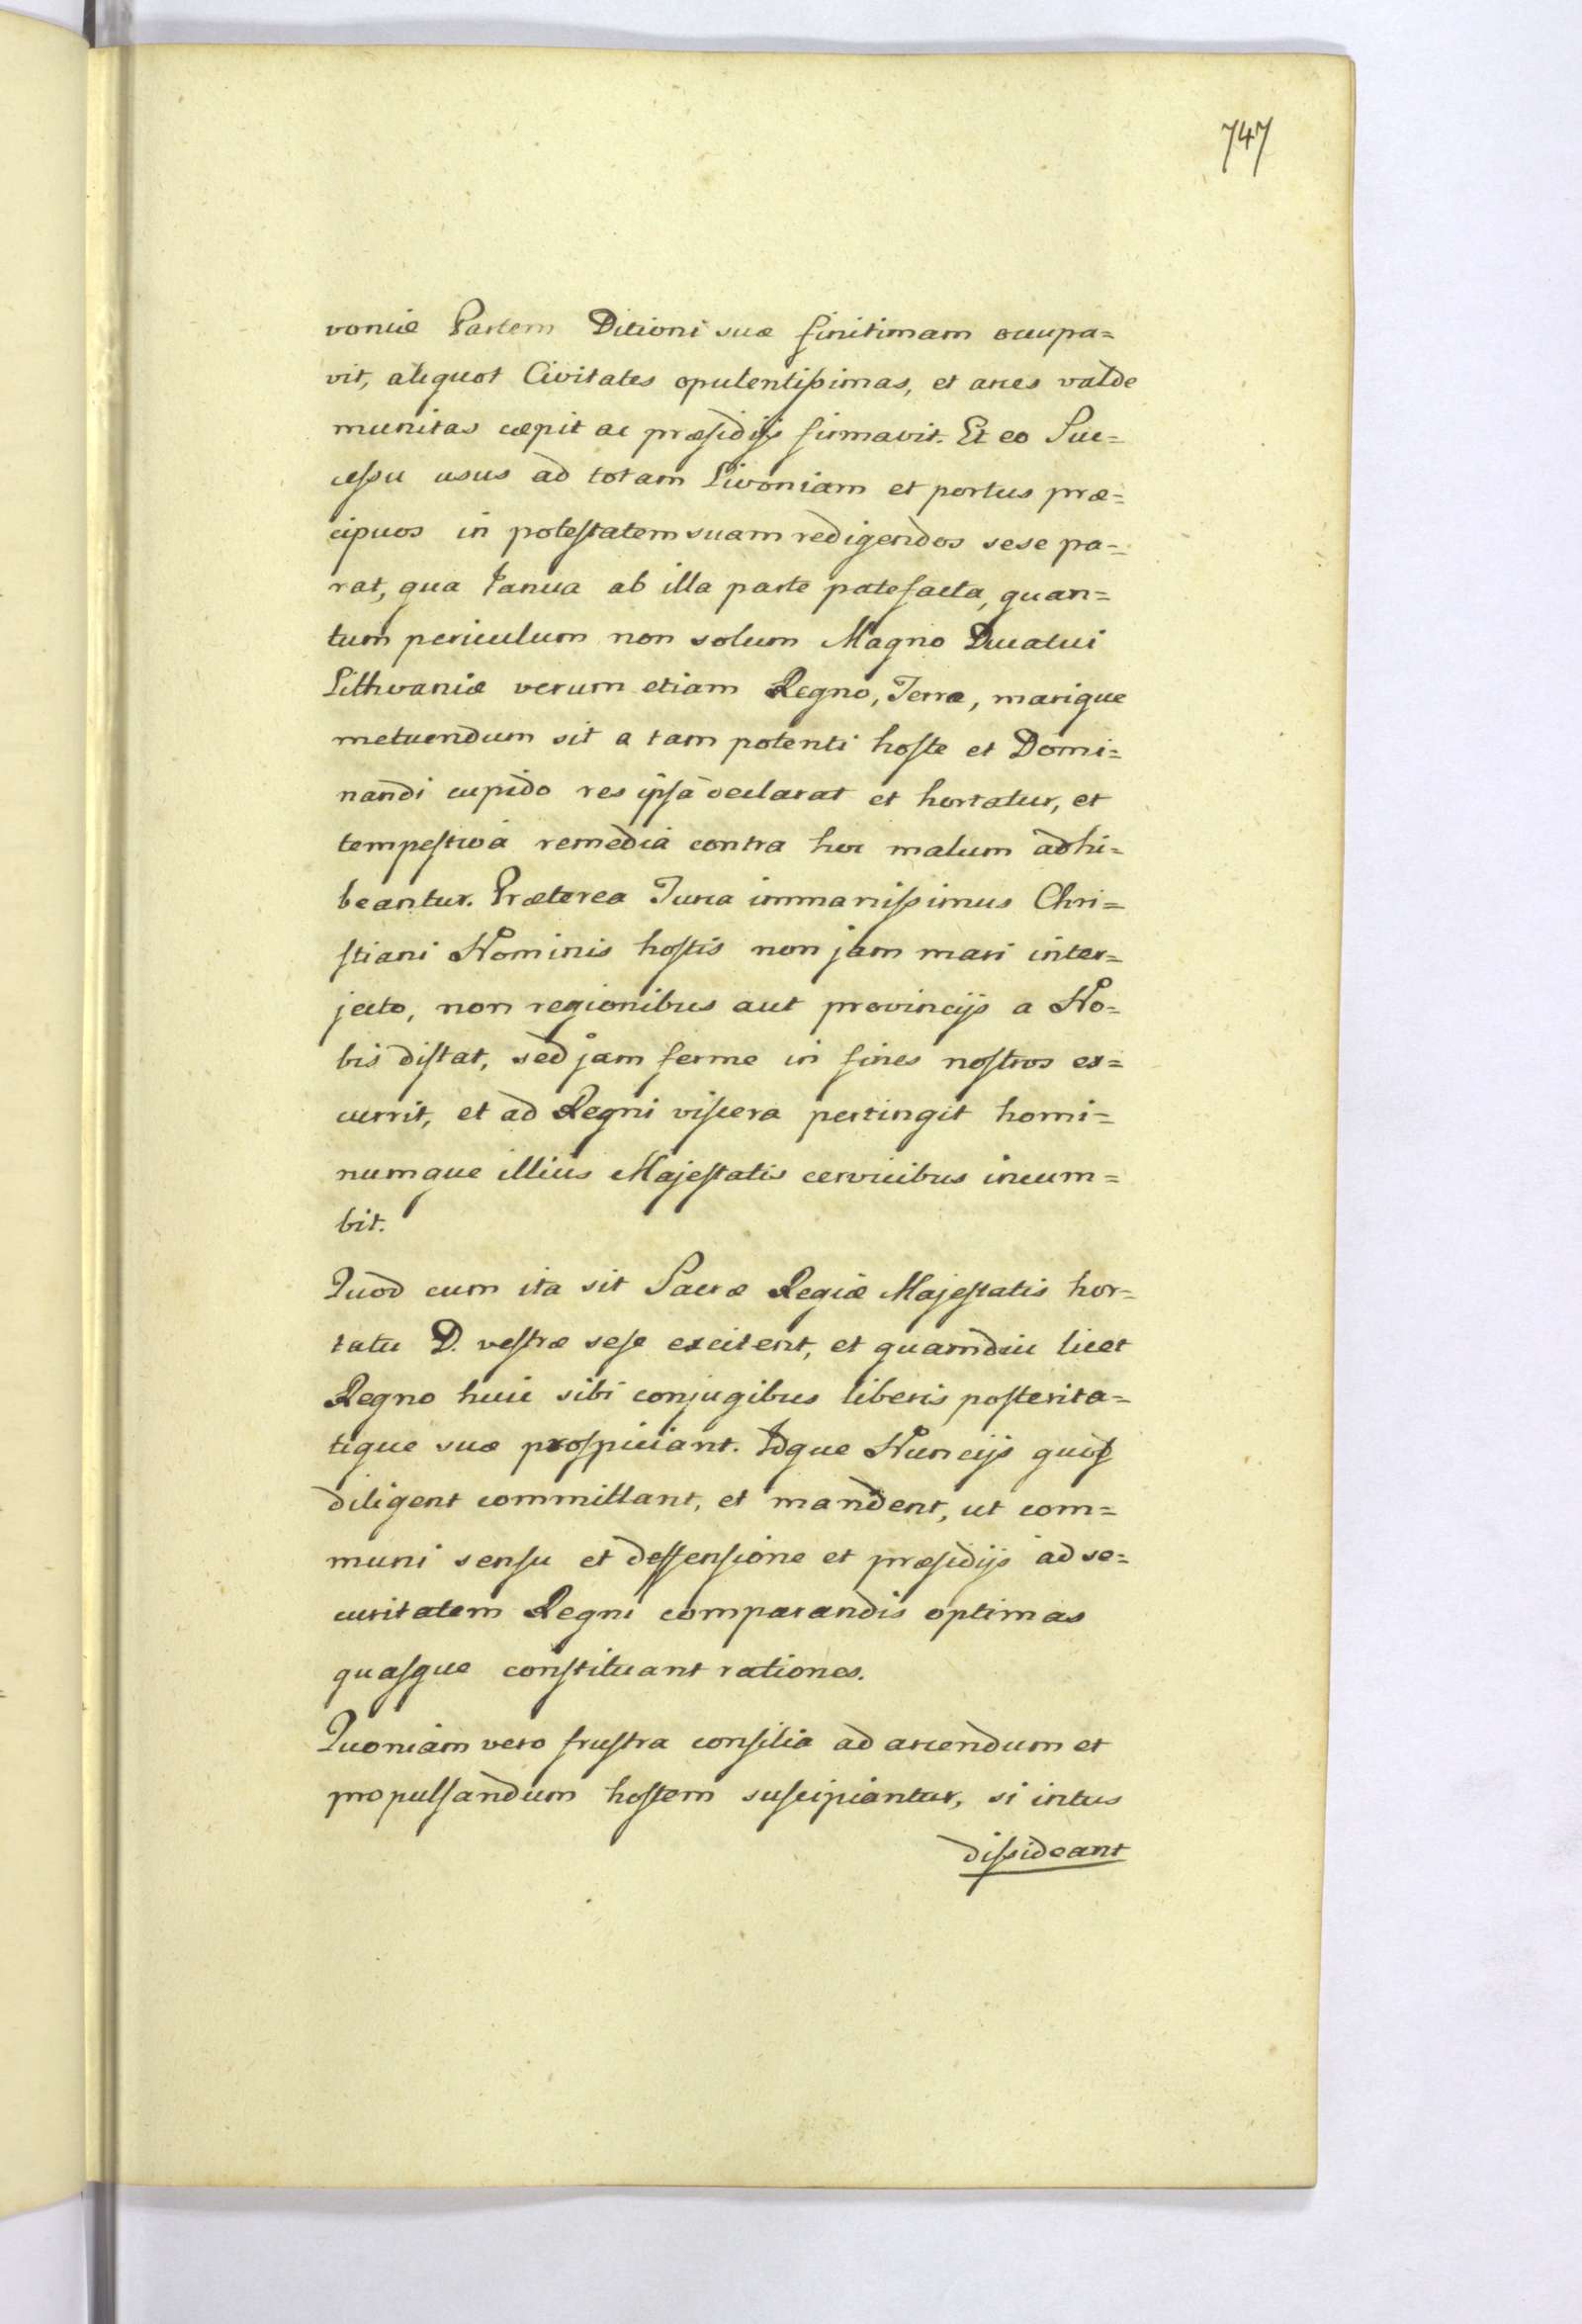 747
voniæ Partem Ditioni suæ finitimam occupa=
vit, aliquot Civitates opulentißimas, et arces valde
munitas cæpit ac præsidijs firmavit. Et eo Suc=
cessu usus ad totam Livoniam et portus præ=
cipuos in potestatem suam redigendos sese pa=
rat, qua Ianua ab illa parte patefacta, quan=
tum periculum non solum Magno Ducatui
Lithvaniæ verum etiam Regno, Terra, marique
metuendum sit a tam potenti hoste et Domi=
nandi cupido res ipsa declarat et hortatur, et
tempestiva remedia contra hoc malum adhi=
beantur. Præterea Turca immanissimus Chri=
stiani Nominis hostis non jam mari inter=
jecto, non regionibus aut provincijs a No=
bis distat, sed jam ferme in fines nostros ex=
currit, et ad Regni viscera pertingit homi=
numque illius Majestatis cervicibus incum=
bit.
Quod cum ita sit Sacræ Regiæ Majestatis hor=
tatu D. vestræ sese excitent, et quamdiu licet
Regno huic sibi conjugibus liberis posterita=
tique suæ prospiciant. Idque Nuncijs quos
diligent committant, et mandent, ut com=
muni sensu et deffensione et præsidijs ad se=
curitatem Regni comparandis optimas
quasque constituant rationes.
Quoniam vero frustra consilia ad arcendum et
propulsandum hostem suscipiantur, si intus
dissideant